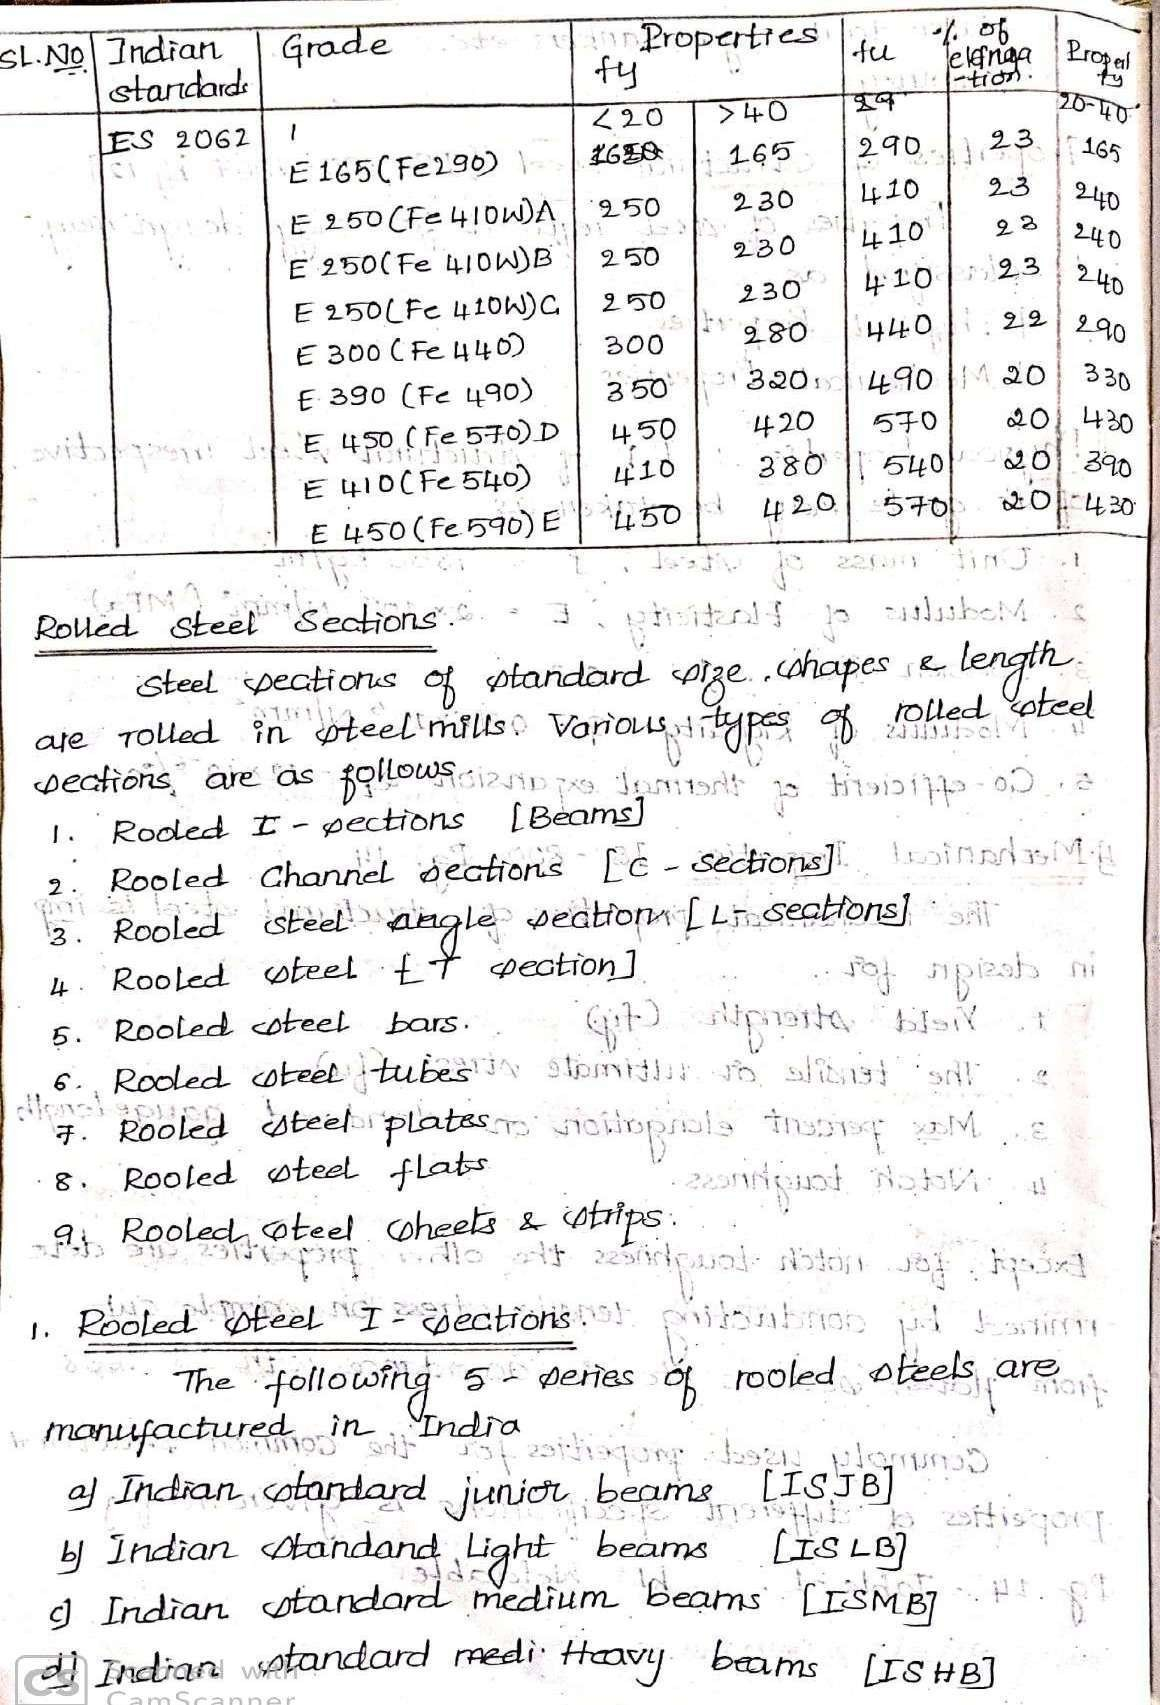 SL.NO Indian Grade Properties fu % of Propert
standards fy elonga ty
-tion.
<20 >40 29 20-40
ES 2062 1
E 165 (Fe290) 1650 165 290 23 165
E 250 (Fe 410W)A 250 230 410 23 240
E 250 (Fe 410W)B 250 230 410 23 240
E 250 (Fe 410W)C 250 230 410 23 240
E 300 (Fe 440) 300 280 440 22 290
E 390 (Fe 490) 350 320 490 20 330
E 450 (Fe 570) D 450 420 570 20 430
E 410 (Fe 540) 410 380 540 20 390
E 450 (Fe 590) E 450 420 570 20 430
Rolled Steel Sections.
Steel sections of standard size, shapes & length
are rolled in steel mills. Various types of rolled steel
sections, are as follows.
1. Rooled I - sections [Beams]
2. Rooled Channel sections [C - Sections]
3. Rooled steel angle section [L - sections]
4. Rooled steel [T section]
5. Rooled steel bars.
6. Rooled steel tubes
7. Rooled steel plates
8. Rooled steel flats
9. Rooled steel sheets & strips.
1. Rooled steel I - sections.
The following 5 - series of rooled steels are
manufactured in India
a) Indian standard junior beams [ISJB]
b) Indian standand Light beams [ISLB]
c) Indian standard medium beams [ISMB]
d) Indian standard medi Heavy beams [ISHB]
CS Scanned with
CamScanner